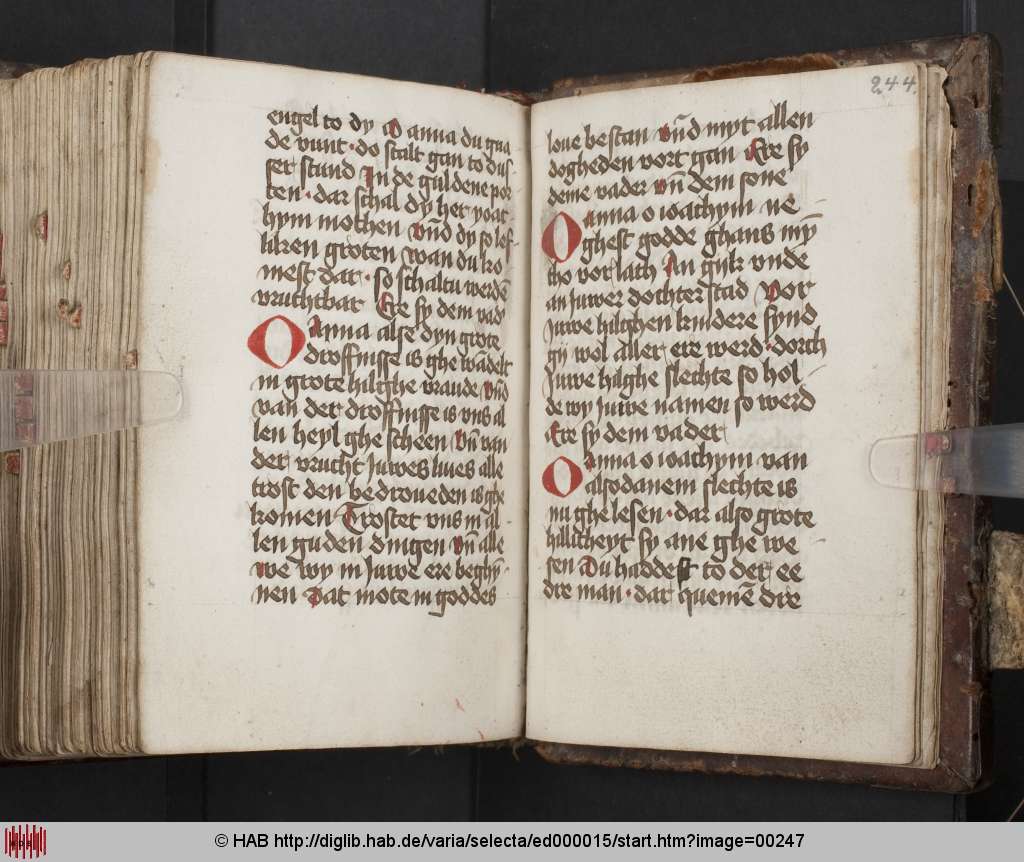 engel to dy O anna du gna
de vunt · do stalt gan to dus
ser stund In de guldene por
ten · dar schal dy her yoac
hym mothen vnd dy so lef
liken groten wan du ko
mest dar · so schaltu werdē
vruchtbar Ere sy dem vad
O Anna alse dyn grote
droffnisse is ghe wādelt
in grote hilghe vraude vnd
van der droffnisse is vns al
len heyl ghe scheen vn̄ van
der vrucht Juwes liues alle
trost den bedroueden is ghe
komen Trostet vns in al
len guden dingen vn̄ alle
we wy in Juwe ere beghȳ
nen Dat mote in goddes
244
loue bestan vn̄d myt allen
dogheden vort gan Ere sy
deme vader vn̄ dem sone
O Anna o ioachym ne
ghest godde ghans mȳ
tho vorlath An gyk vnde
an Juwer dochter stad Vor
Juwe hilghen kindere synd
gy wol aller ere werd · dorch
Juwe hilghe slechte so hol
de wy Juwe namen so werd
Ere sy dem vader
O Anna o ioachym van
alsodanem slechte is
nu ghe lesen · dar also grote
hillicheyt sy ane ghe we
sen Du haddest to der ee
dre man · dar quemē dre
© HAB http://diglib.hab.de/varia/selecta/ed000015/start.htm?image=00247